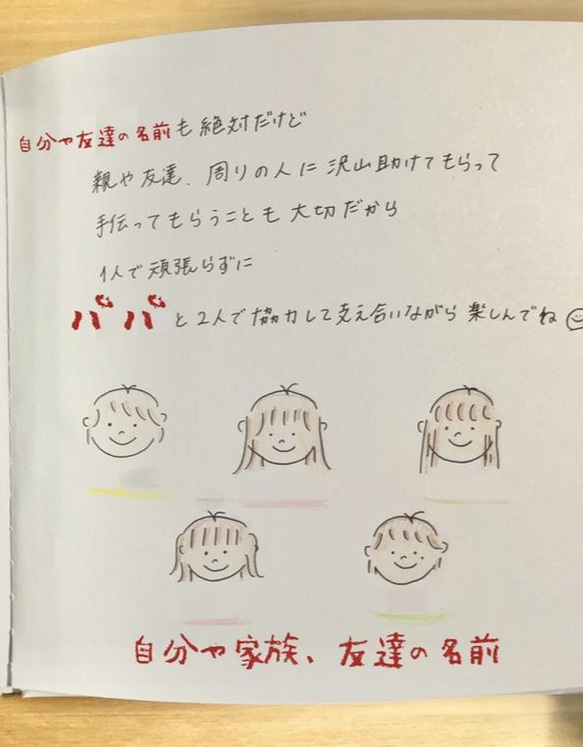 自分や友達の名前も絶対だけど
親や友達、周りの人に沢山助けてもらって
手伝ってもらうことも大切だから
1人で頑張らずに
パパと2人で協力して支え合いながら楽しんでね
自分や家族、友達の名前